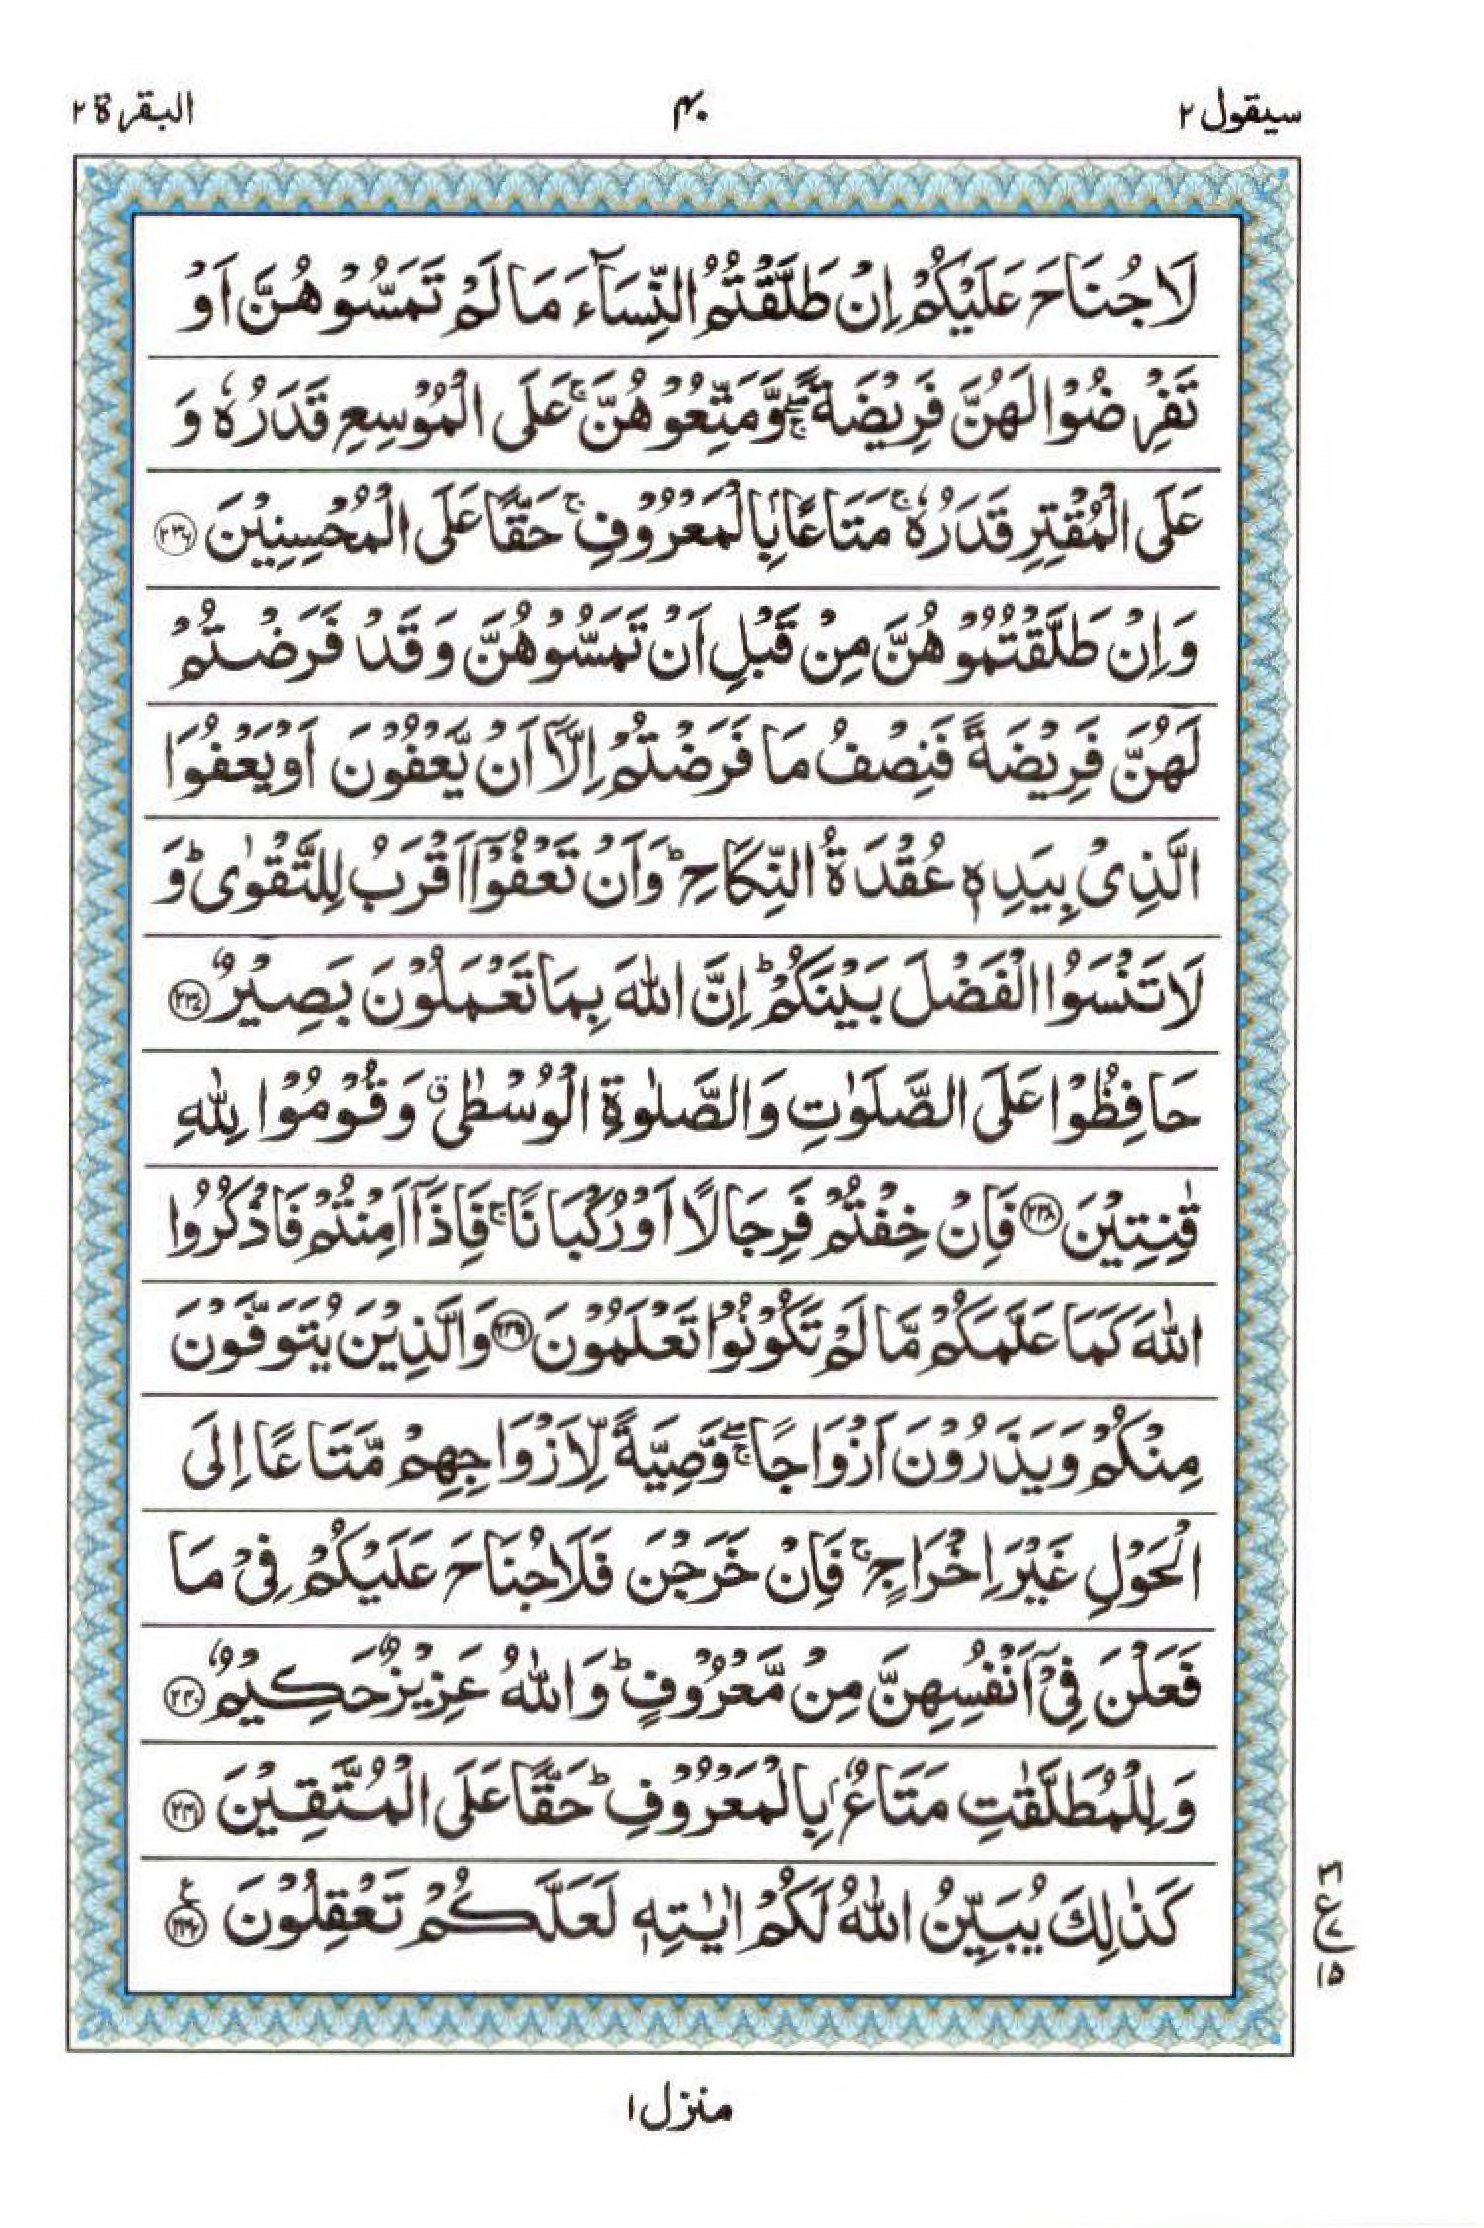 سيقول ٢
٤٠
البقرة ٢
لَا جُنَاحَ عَلَيْكُمْ اِنْ طَلَّقْتُمُ النِّسَآءَ مَا لَمْ تَمَسُّوْهُنَّ اَوْ
تَفْرِضُوْا لَهُنَّ فَرِيْضَةً ۚۖ وَّمَتِّعُوْهُنَّ ۚ عَلَى الْمُوْسِعِ قَدَرُهٗ وَ
عَلَى الْمُقْتِرِ قَدَرُهٗ ۚ مَتَاعًۢا بِالْمَعْرُوْفِ ۚ حَقًّا عَلَى الْمُحْسِنِيْنَ ﴿٢٣٦﴾
وَاِنْ طَلَّقْتُمُوْهُنَّ مِنْ قَبْلِ اَنْ تَمَسُّوْهُنَّ وَقَدْ فَرَضْتُمْ
لَهُنَّ فَرِيْضَةً فَنِصْفُ مَا فَرَضْتُمْ اِلَّاۤ اَنْ يَّعْفُوْنَ اَوْ يَعْفُوَا
الَّذِىْ بِيَدِهٖ عُقْدَةُ النِّكَاحِ ؕ وَاَنْ تَعْفُوْۤا اَقْرَبُ لِلتَّقْوٰى ؕ وَ
لَا تَنْسَوُا الْفَضْلَ بَيْنَكُمْ ؕ اِنَّ اللّٰهَ بِمَا تَعْمَلُوْنَ بَصِيْرٌ ﴿٢٣٧﴾
حَافِظُوْا عَلَى الصَّلَوٰتِ وَالصَّلٰوةِ الْوُسْطٰى ۗ وَقُوْمُوْا لِلّٰهِ
قٰنِتِيْنَ ﴿٢٣٨﴾ فَاِنْ خِفْتُمْ فَرِجَالًا اَوْ رُكْبَانًا ۚ فَاِذَاۤ اَمِنْتُمْ فَاذْكُرُوا
اللّٰهَ كَمَا عَلَّمَكُمْ مَّا لَمْ تَكُوْنُوْا تَعْلَمُوْنَ ﴿٢٣٩﴾ وَالَّذِيْنَ يُتَوَفَّوْنَ
مِنْكُمْ وَيَذَرُوْنَ اَزْوَاجًا ۚۖ وَّصِيَّةً لِّاَزْوَاجِهِمْ مَّتَاعًا اِلَى
الْحَوْلِ غَيْرَ اِخْرَاجٍ ۚ فَاِنْ خَرَجْنَ فَلَا جُنَاحَ عَلَيْكُمْ فِىْ مَا
فَعَلْنَ فِىْۤ اَنْفُسِهِنَّ مِنْ مَّعْرُوْفٍ ؕ وَاللّٰهُ عَزِيْزٌ حَكِيْمٌ ﴿٢٤٠﴾
وَلِلْمُطَلَّقٰتِ مَتَاعٌۢ بِالْمَعْرُوْفِ ؕ حَقًّا عَلَى الْمُتَّقِيْنَ ﴿٢٤١﴾
كَذٰلِكَ يُبَيِّنُ اللّٰهُ لَكُمْ اٰيٰتِهٖ لَعَلَّكُمْ تَعْقِلُوْنَ ﴿٢٤٢﴾ ع
منزل ١